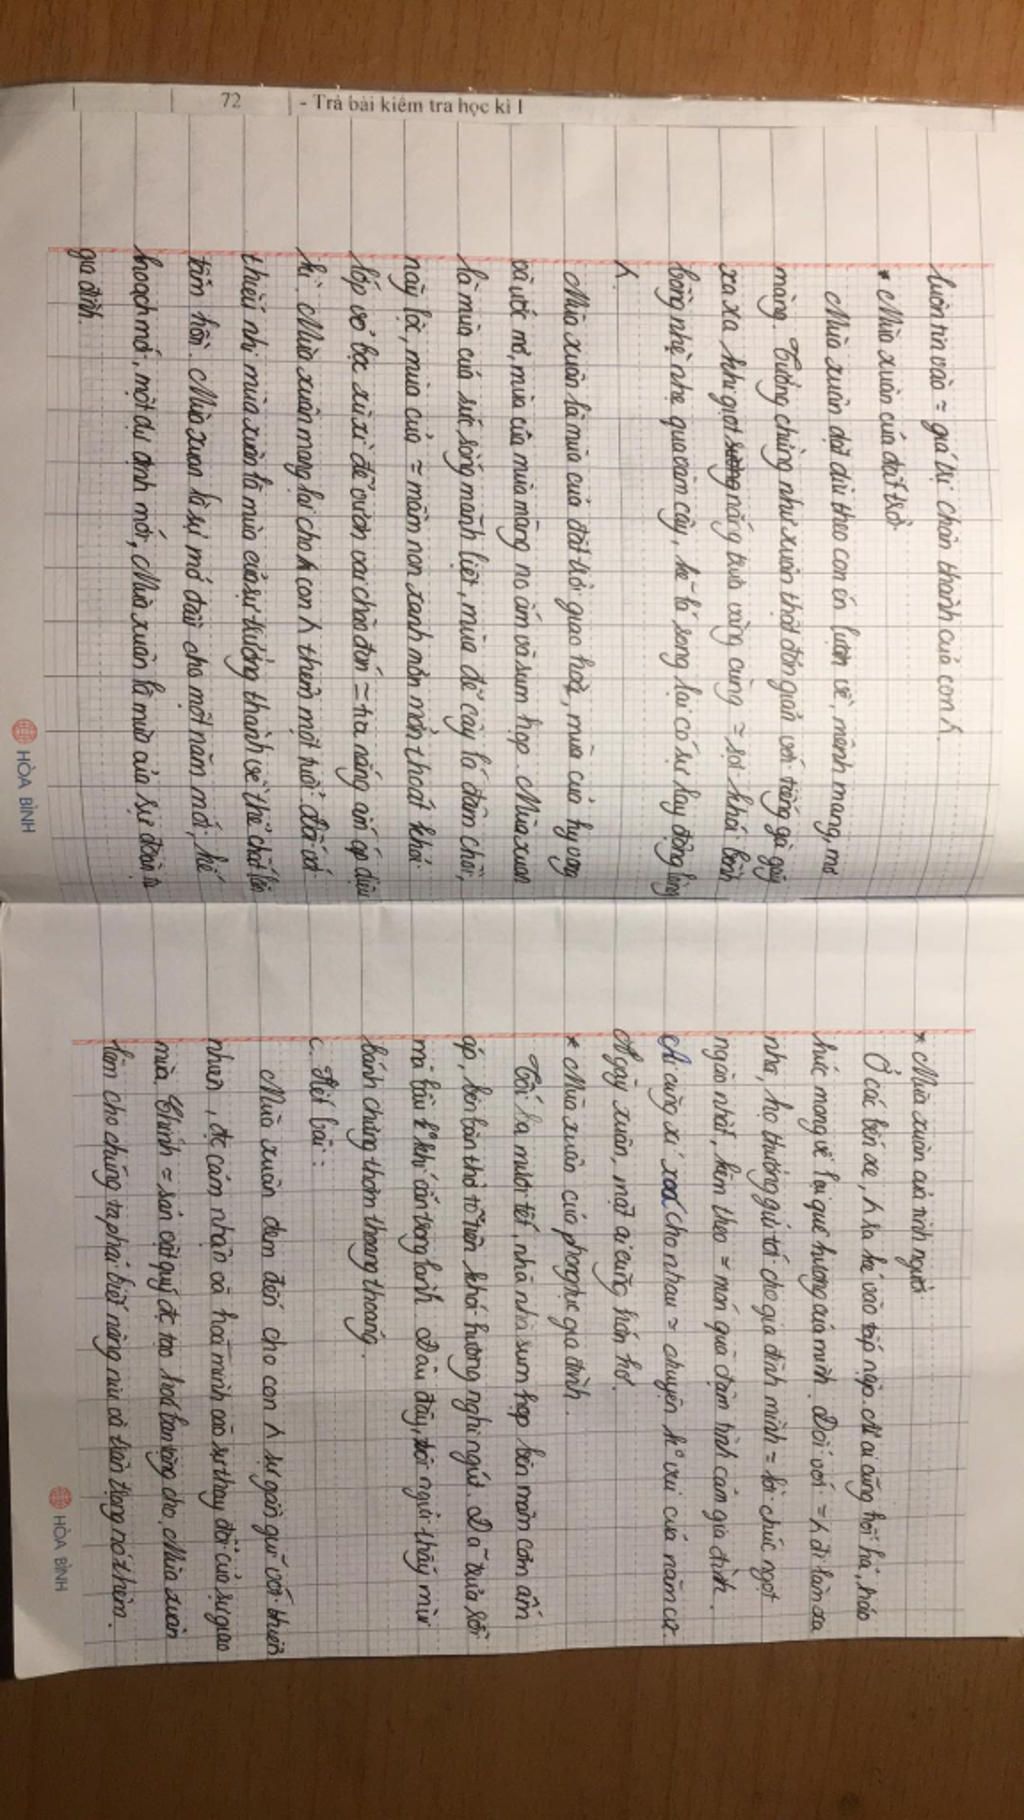 72 - Trả bài kiểm tra học kì I
luôn tin vào = giá trị chân thành của con λ.
* Mùa xuân của đất trời
Mùa xuân dặt dìu theo con én lượn về, mênh mang, mơ
màng. Tưởng chừng như xuân thật đơn giản với tiếng gà gáy
xa xa khi giọt nắng trưa vàng cùng = sợi khói bềnh
bồng nhè nhẹ qua vòm cây, kẽ lá song lại có sự lay động lòng
λ.
Mùa xuân là mùa của đất trời giao hoà, mùa của hy vọng
và ước mơ, mùa của mùa màng no ấm và sum họp. Mùa xuân
là mùa của sức sống mãnh liệt, mùa để cây lá đâm chồi,
nảy lộc, mùa của = mầm non xanh mơn mởn thoát khỏi
lớp vỏ bọc xù xì để vươn vai chào đón = tia nắng ấm áp diệu
kì. Mùa xuân mang lại cho λ con λ thêm một tuổi. Đối với
thiếu nhi mùa xuân là mùa của sự trưởng thành về thể chất lẫn
tâm hồn. Mùa xuân là sự mở đầu cho một năm mới, kế
hoạch mới, một dự định mới, Mùa xuân là mùa của sự đoàn tụ
gia đình.
HÒA BÌNH
* Mùa xuân của tình người
Ở các bến xe, λ ra kẻ vào tấp nập. Ai ai cũng hối hả, háo
hức mong về lại quê hương của mình. Đối với = λ đi làm xa
nhà, họ thường gửi tới cho gia đình mình = lời chúc ngọt
ngào nhất, kèm theo = món quà đậm tình cảm gia đình.
Ai cũng xí xoá cho nhau = chuyện k° vui của năm cũ.
Ngày xuân, mặt ai cũng hớn hở.
* Mùa xuân của phong tục gia đình.
Tối ba mươi tết, nhà nhà sum họp bên mâm cơm ấm
áp, bên bàn thờ tổ tiên khói hương nghi ngút. Dã bưởi sôi
mà bầu k° khí vẫn trong lành. Đâu đây, ngửi thấy mùi
bánh chưng thơm thoang thoảng.
C. Kết bài:
Mùa xuân đem đến cho con λ sự gần gũi với thiên
nhiên, đc cảm nhận và hoà mình vào sự thay đổi của sự giao
mùa. Chính = sản vật quý đc tạo hoá ban tặng cho Mùa xuân
làm cho chúng ta phải biết nâng niu và trân trọng nó thêm.
HÒA BÌNH